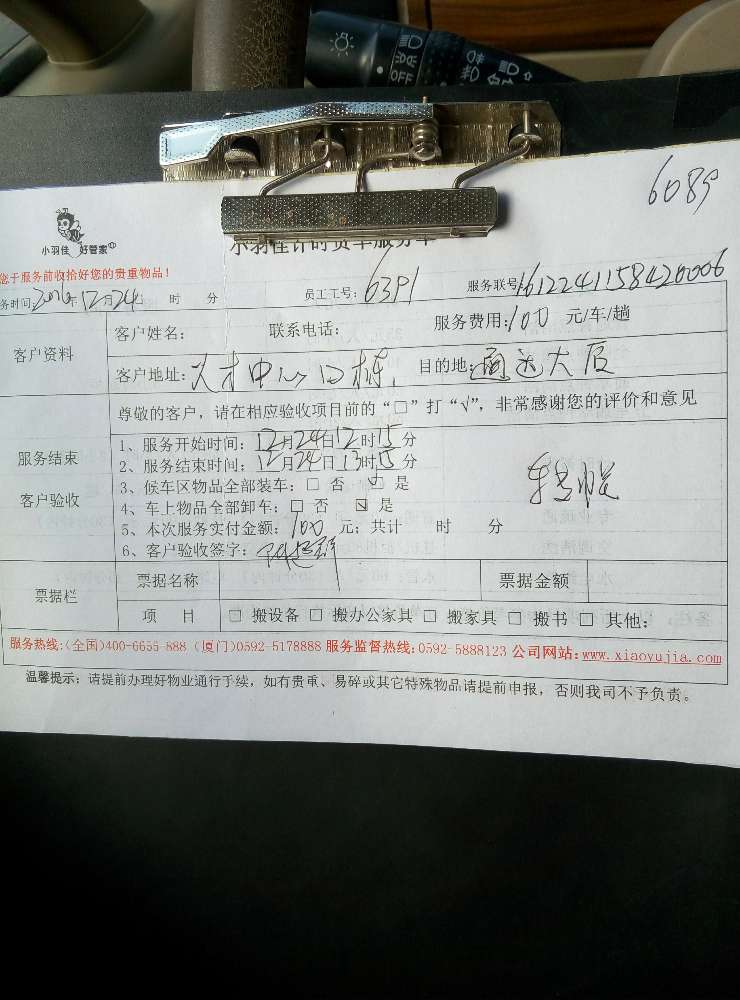 OFF
6089
小羽佳 好管家
小羽佳计时货车服务单
您于服务前收拾好您的贵重物品！
务时间:2016年12月24日 时 分 员工工号: 6391 服务联号1612241158420006
客户资料
客户姓名: 联系电话: 服务费用:100 元/车/趟
客户地址:人才中心口栋, 目的地:通达大厦
服务结束
客户验收
尊敬的客户，请在相应验收项目前的“□”打“√”，非常感谢您的评价和意见
1、服务开始时间：12月24日12时15分
2、服务结束时间：12月24日13时15分
3、候车区物品全部装车：□ 否 ☑ 是
4、车上物品全部卸车：□ 否 ☑ 是
5、本次服务实付金额：100 元；共计 时 分
6、客户验收签字：
票据栏
票据名称 票据金额
项 目 □ 搬设备 □ 搬办公家具 □ 搬家具 □ 搬书 □ 其他：
服务热线:(全国)400-6655-888 (厦门)0592-5178888 服务监督热线:0592-5888123 公司网站:www.xiaoyujia.com
温馨提示：请提前办理好物业通行手续，如有贵重、易碎或其它特殊物品请提前申报，否则我司不予负责。